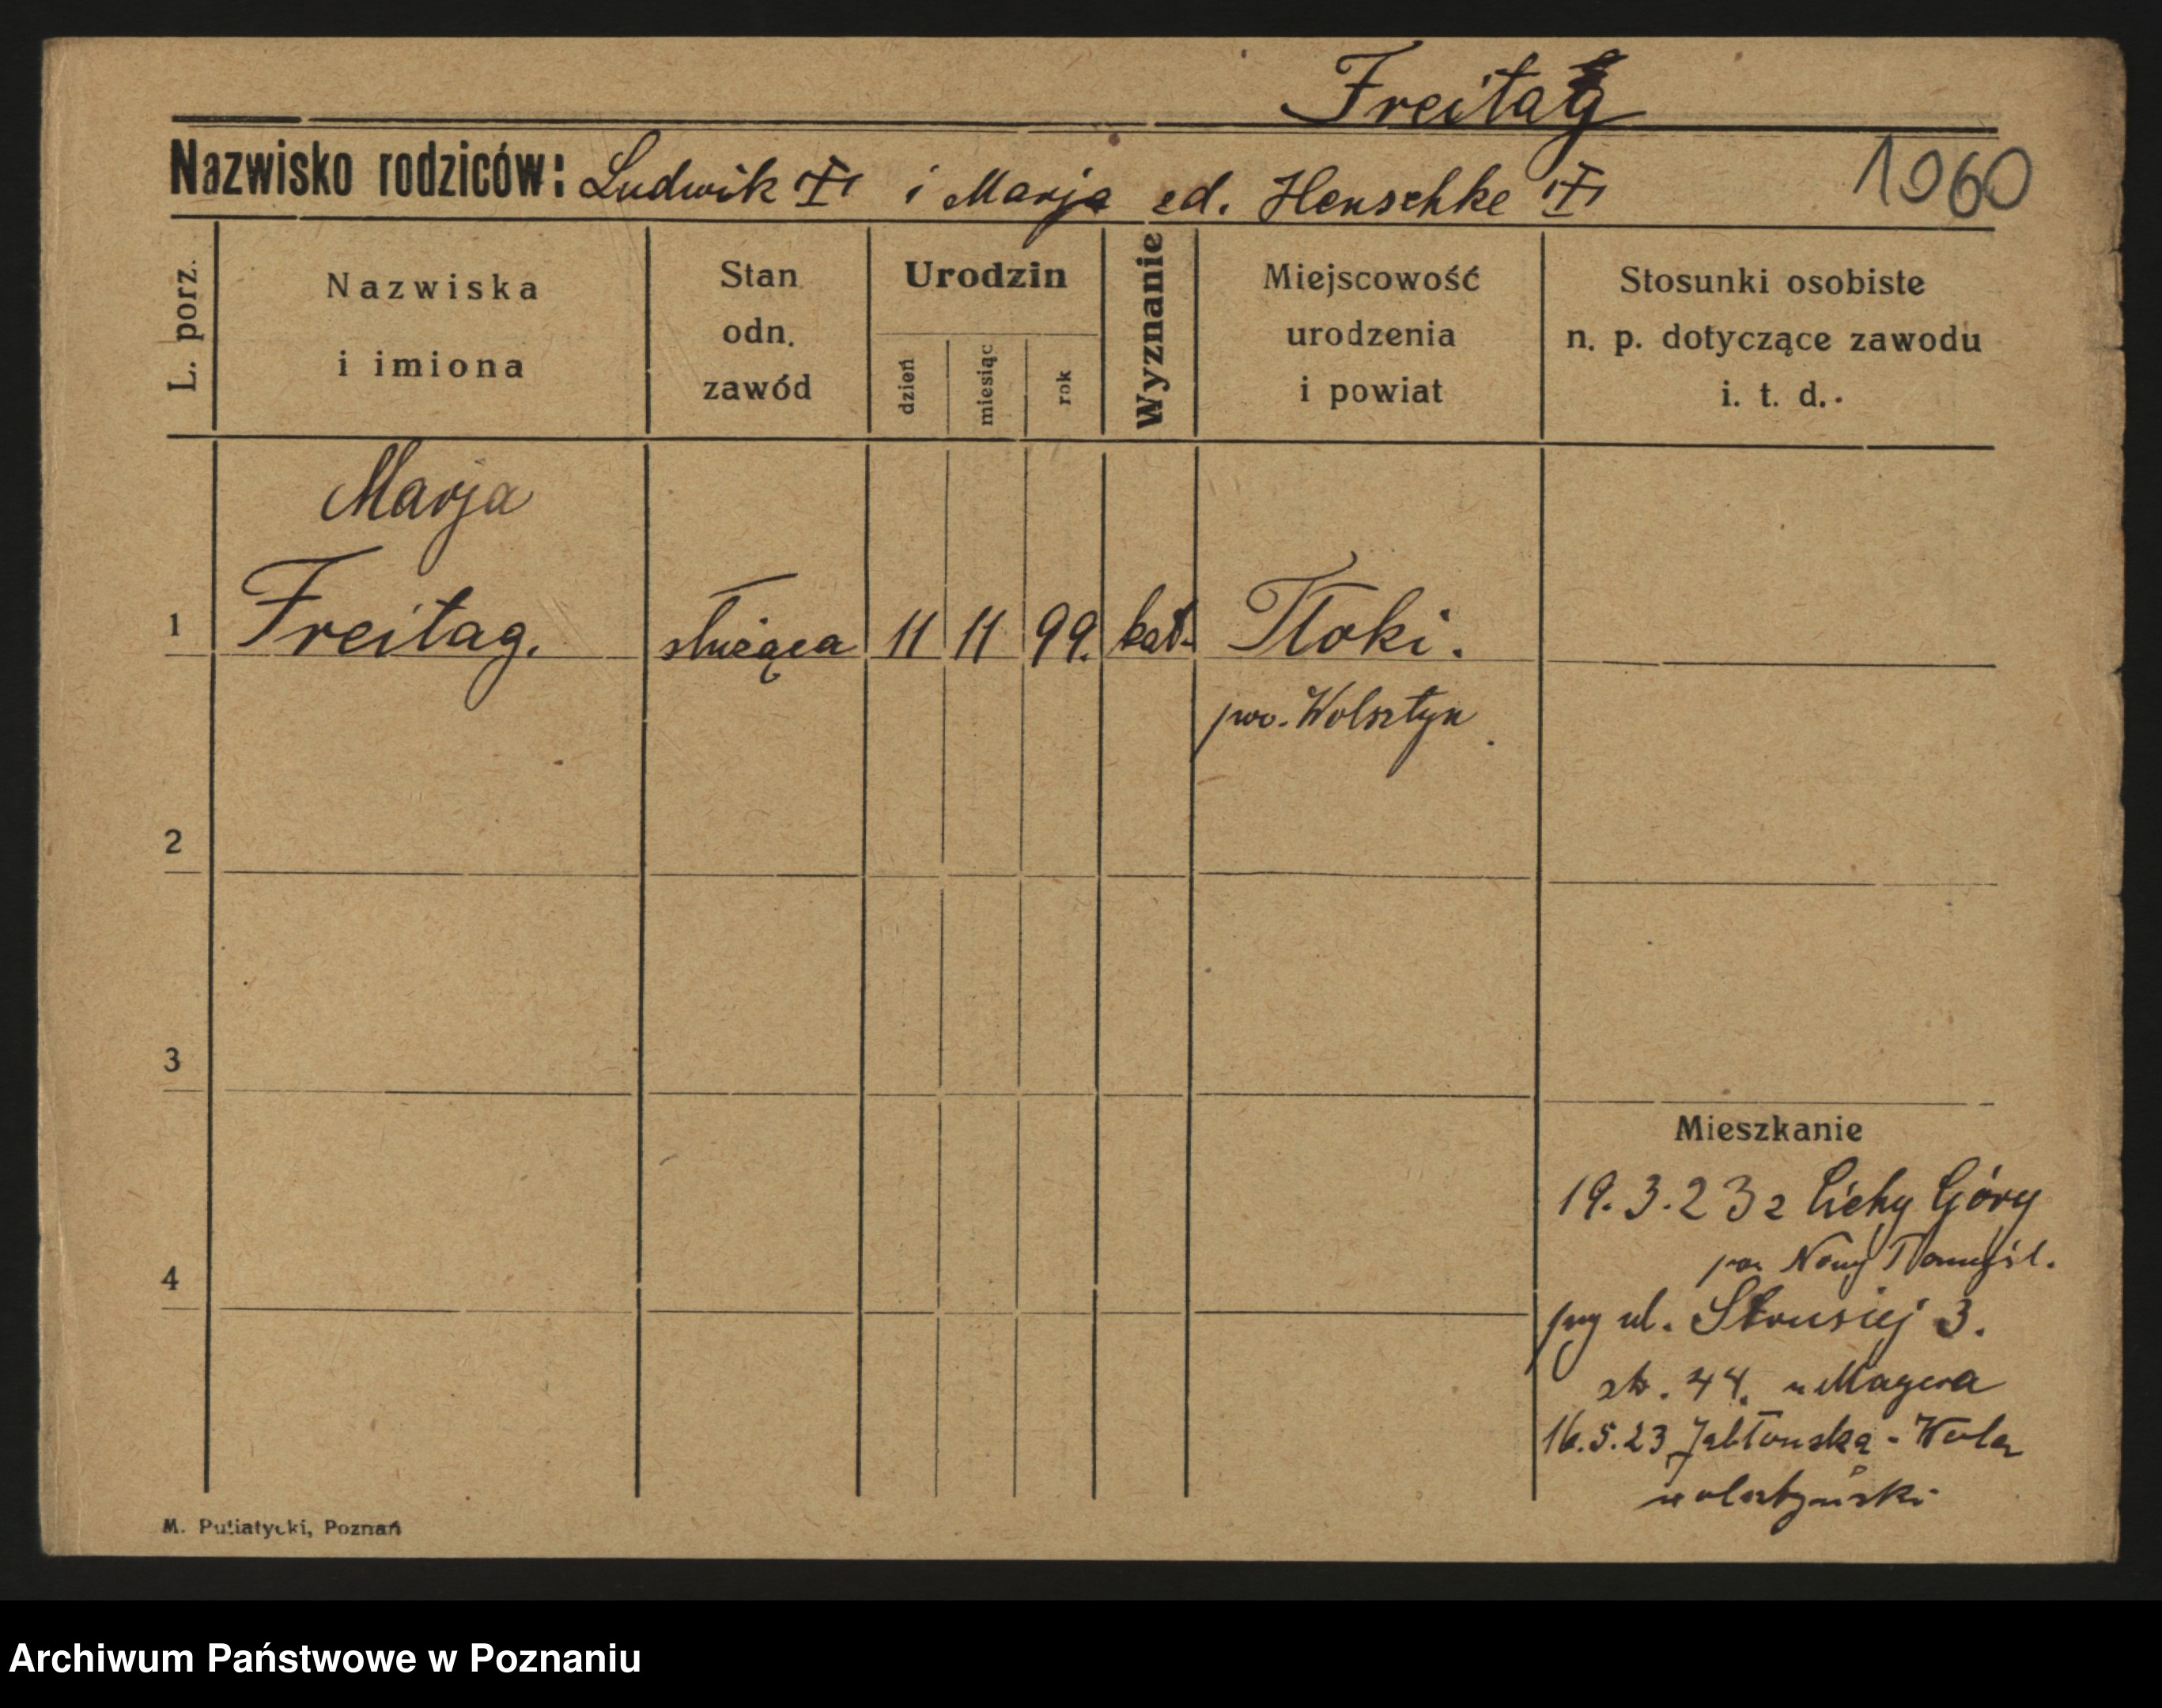 Freitag
Nazwisko rodziców: Ludwik i Marja zd. Henschke
1060
L. porz.
Nazwiska
i imiona
Stan
odn.
zawód
Urodzin
dzień
miesiąc
rok
Wyznanie
Miejscowość
urodzenia
i powiat
Stosunki osobiste
n. p. dotyczące zawodu
i. t. d.
Marja
1 Freitag. służąca 11 11 99. kat. Tłoki.
pow. Wolsztyn
2
3
4
Mieszkanie
19.3.23 z Cichy Góry
pow. Nowy Tomyśl.
przy ul. Strusiej 3.
44. u Magera
16.5.23 Jabłonska-Wola
wolsztyński
M. Putiatycki, Poznań
Archiwum Państwowe w Poznaniu